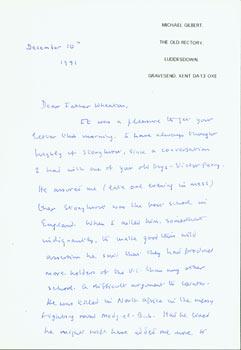 MICHAEL GILBERT.
THE OLD RECTORY,
LUDDESDOWN,
GRAVESEND, KENT DA13 OXE
December 16th
1991
Dear Father Wheaton,
It was a pleasure to get your
letter this morning. I have always thought
highly of Stonyhurst, since a conversation
I had with one of your old boys - Victor Parry.
He assured me (late one evening in mess)
that Stonyhurst was the best school in
England. When I asked him, somewhat
indignantly, to make good this wild
assertion he said that they had produced
more holders of the V.C. than any other
school. A difficult argument to counter.
He was killed in North Africa in the messy
fighting round Medjez-el-Bab. Had he lived
he might well have added one more to